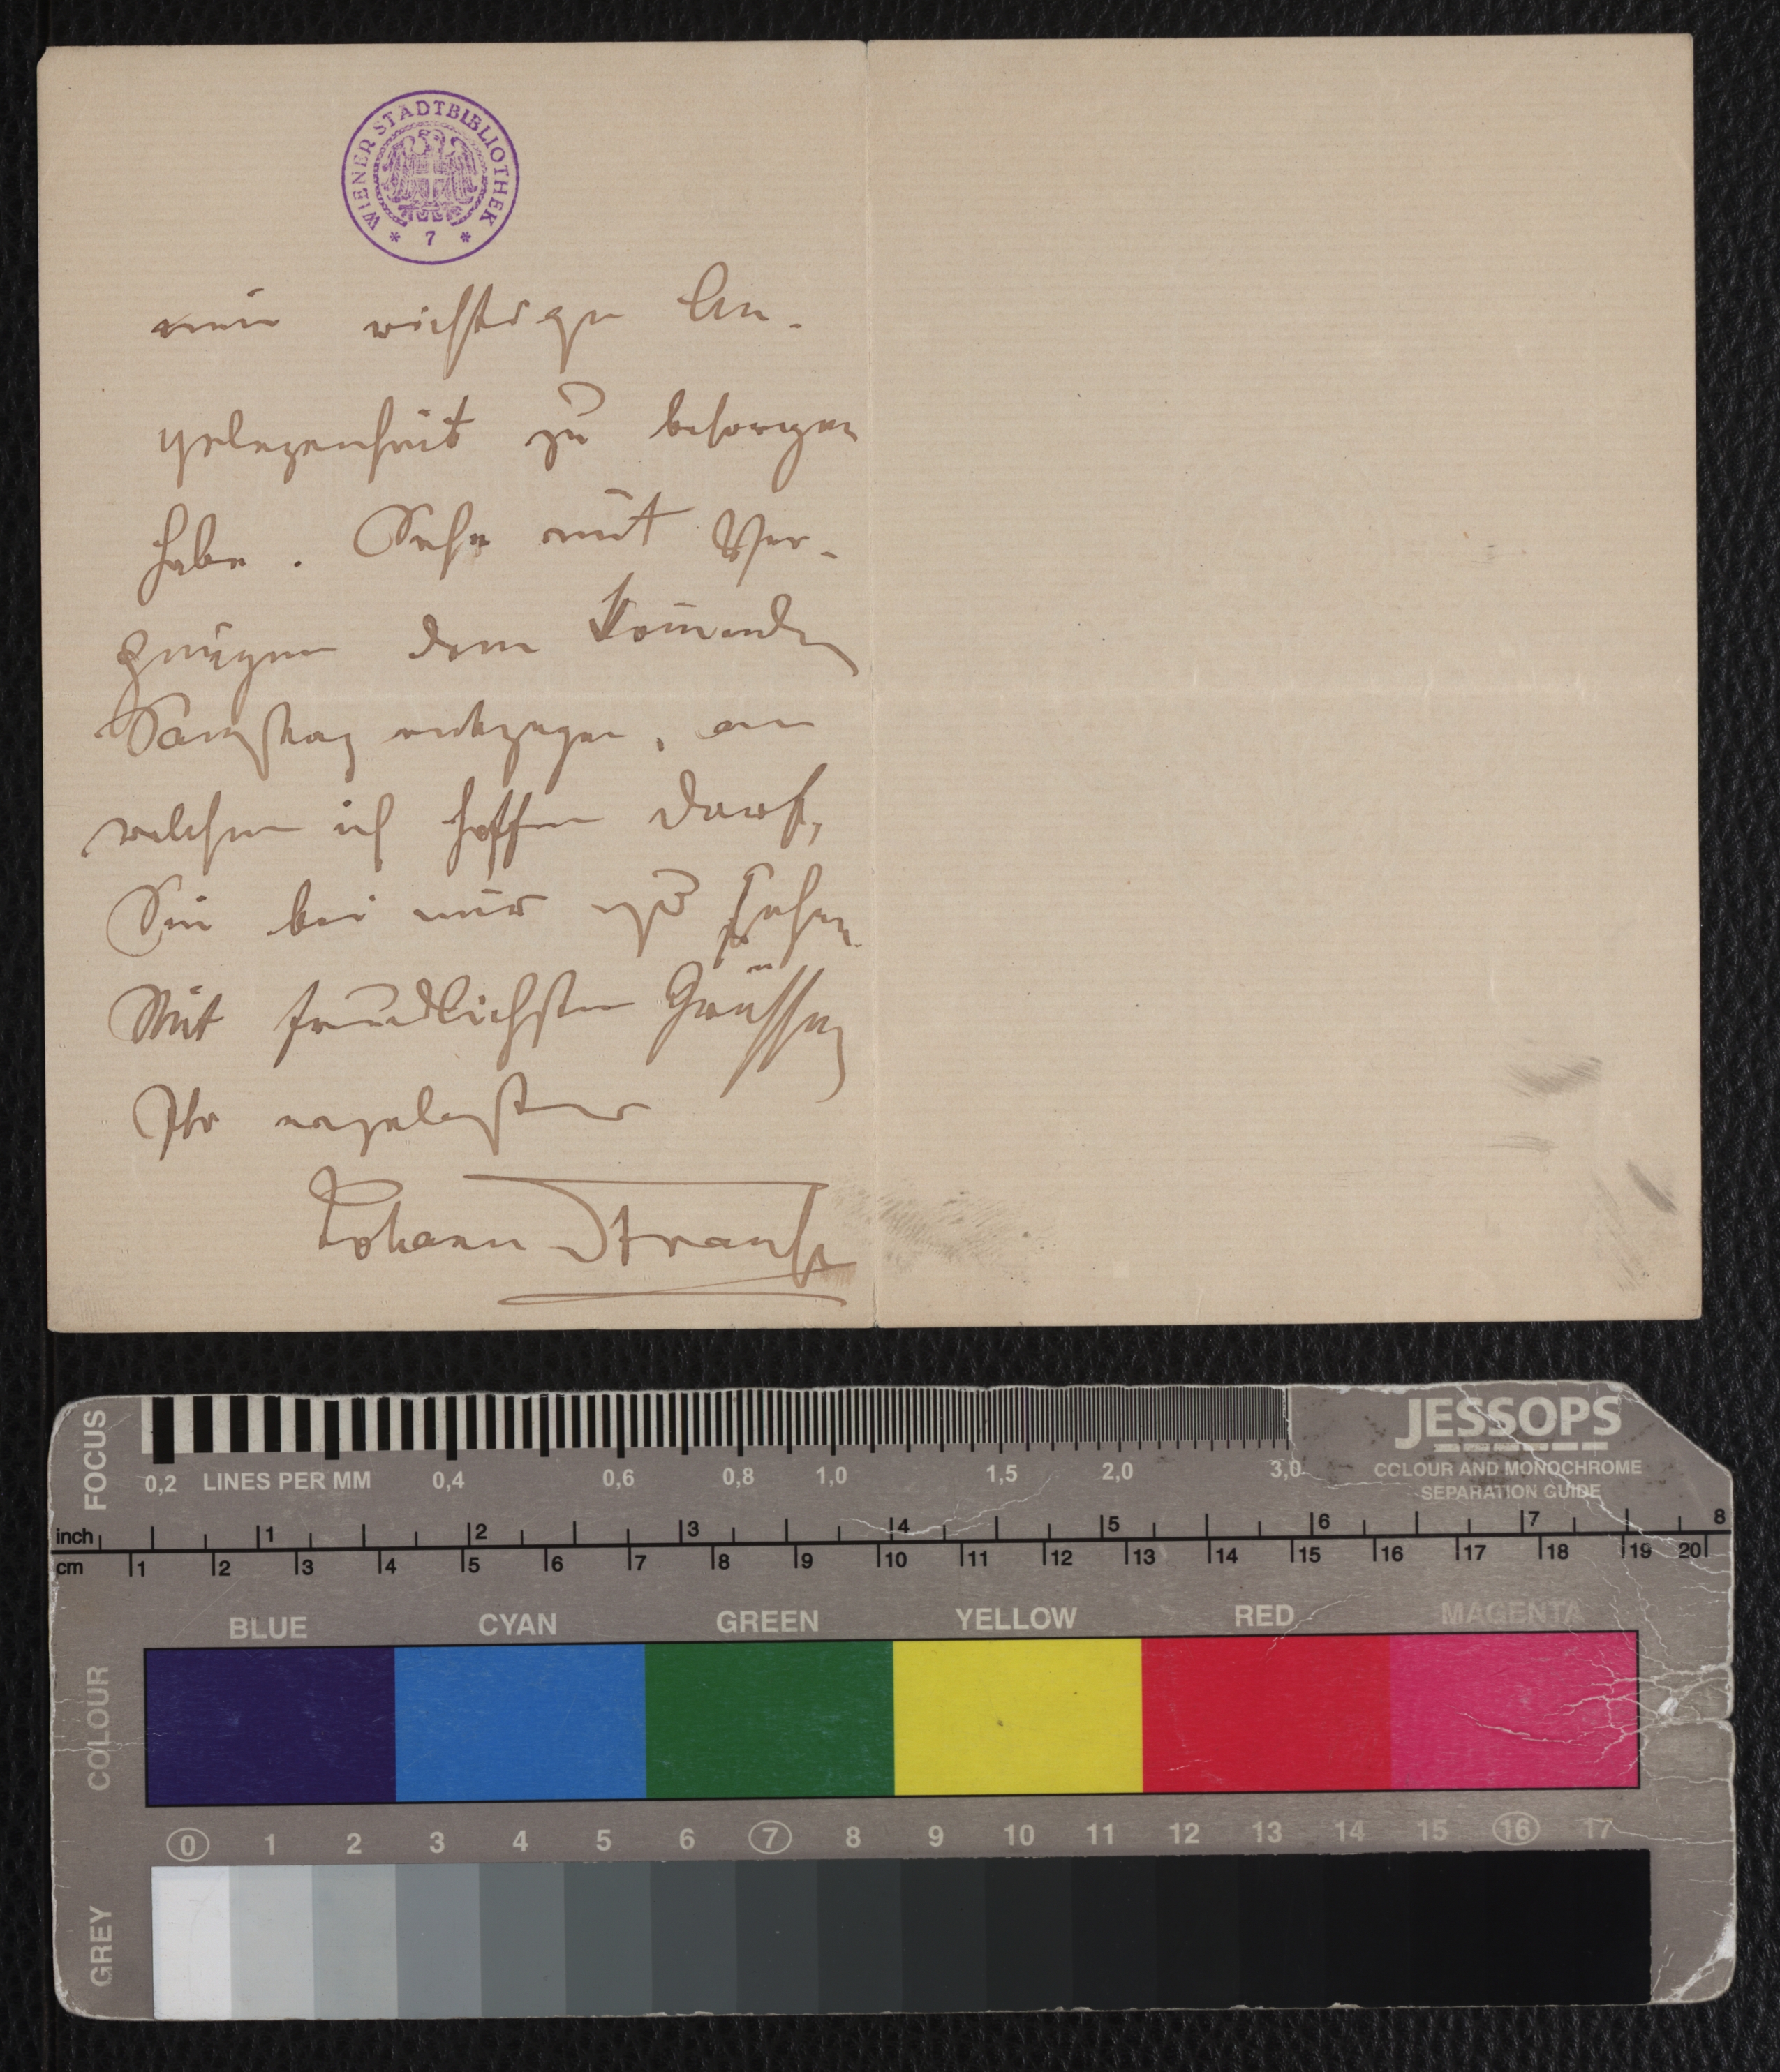 WIENER STADTBIBLIOTHEK
* 7 *
eine wichtige An-
gelegenheit zu besorgen
habe. Sehe mit Ver-
gnügen dem kom̅enden
Samstag entgegen, an
welchem ich hoffen darf,
Sie bei mir zu sehen.
Mit freundlichsten Grüssen
Ihr ergebenster
Johann Strauss
FOCUS
0,2 LINES PER MM 0,4 0,6 0,8 1,0 1,5 2,0 3,0
JESSOPS
COLOUR AND MONOCHROME
SEPARATION GUIDE
inch 1 2 3 4 5 6 7 8
cm 1 2 3 4 5 6 7 8 9 10 11 12 13 14 15 16 17 18 19 20
COLOUR
BLUE CYAN GREEN YELLOW RED MAGENTA
GREY
0 1 2 3 4 5 6 7 8 9 10 11 12 13 14 15 16 17